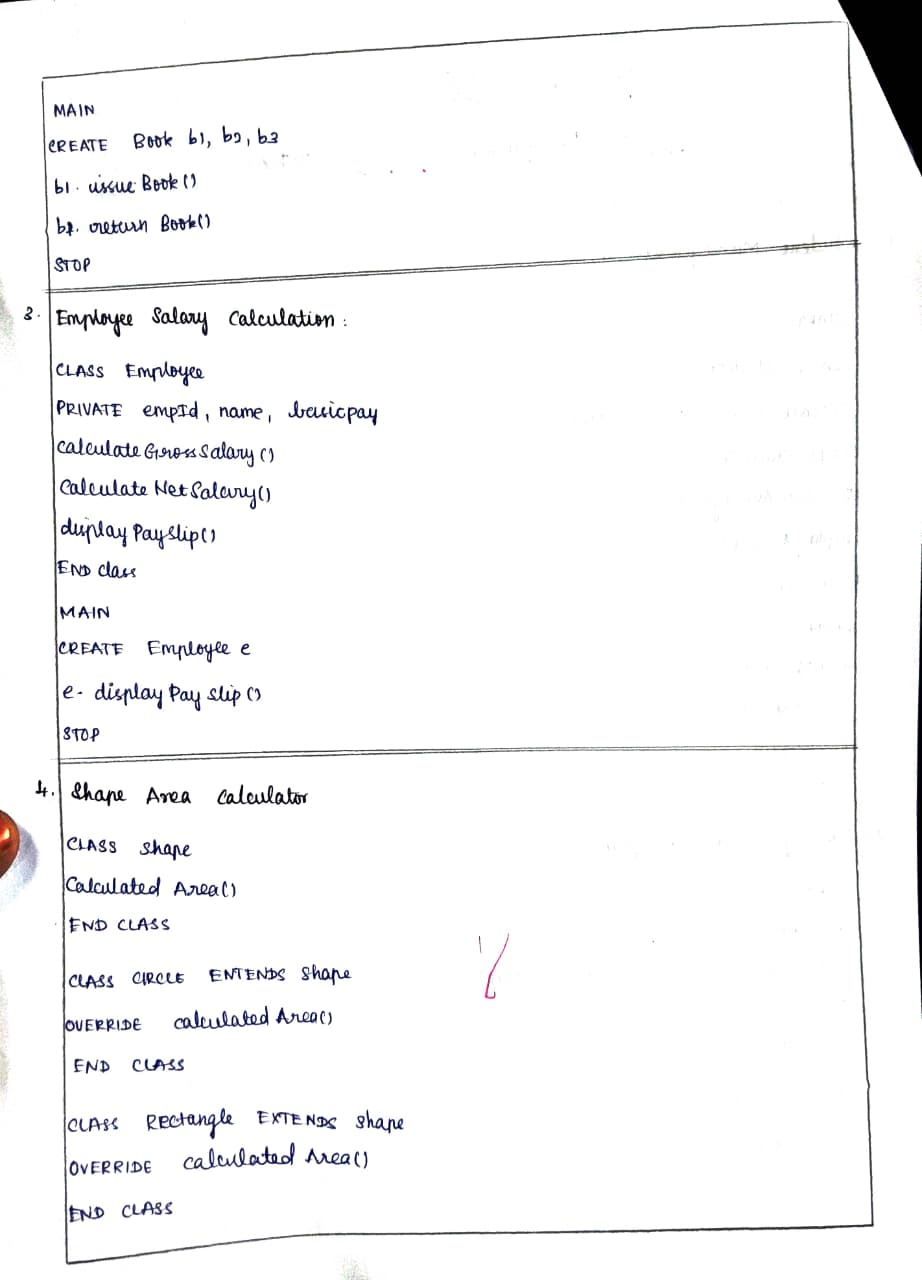 MAIN
CREATE Book b1, b2, b3
b1. issue Book ()
b1. return Book()
STOP
3. Employee Salary Calculation :
CLASS Employee
PRIVATE empId, name, basicpay
calculate Gross Salary ()
Calculate Net Salary()
display Payslip()
END class
MAIN
CREATE Employee e
e. display Pay slip ()
STOP
4. Shape Area Calculator
CLASS Shape
Calculated Area()
END CLASS
CLASS CIRCLE ENTENDS Shape
OVERRIDE calculated Area()
END CLASS
CLASS Rectangle EXTENDS Shape
OVERRIDE calculated Area()
END CLASS